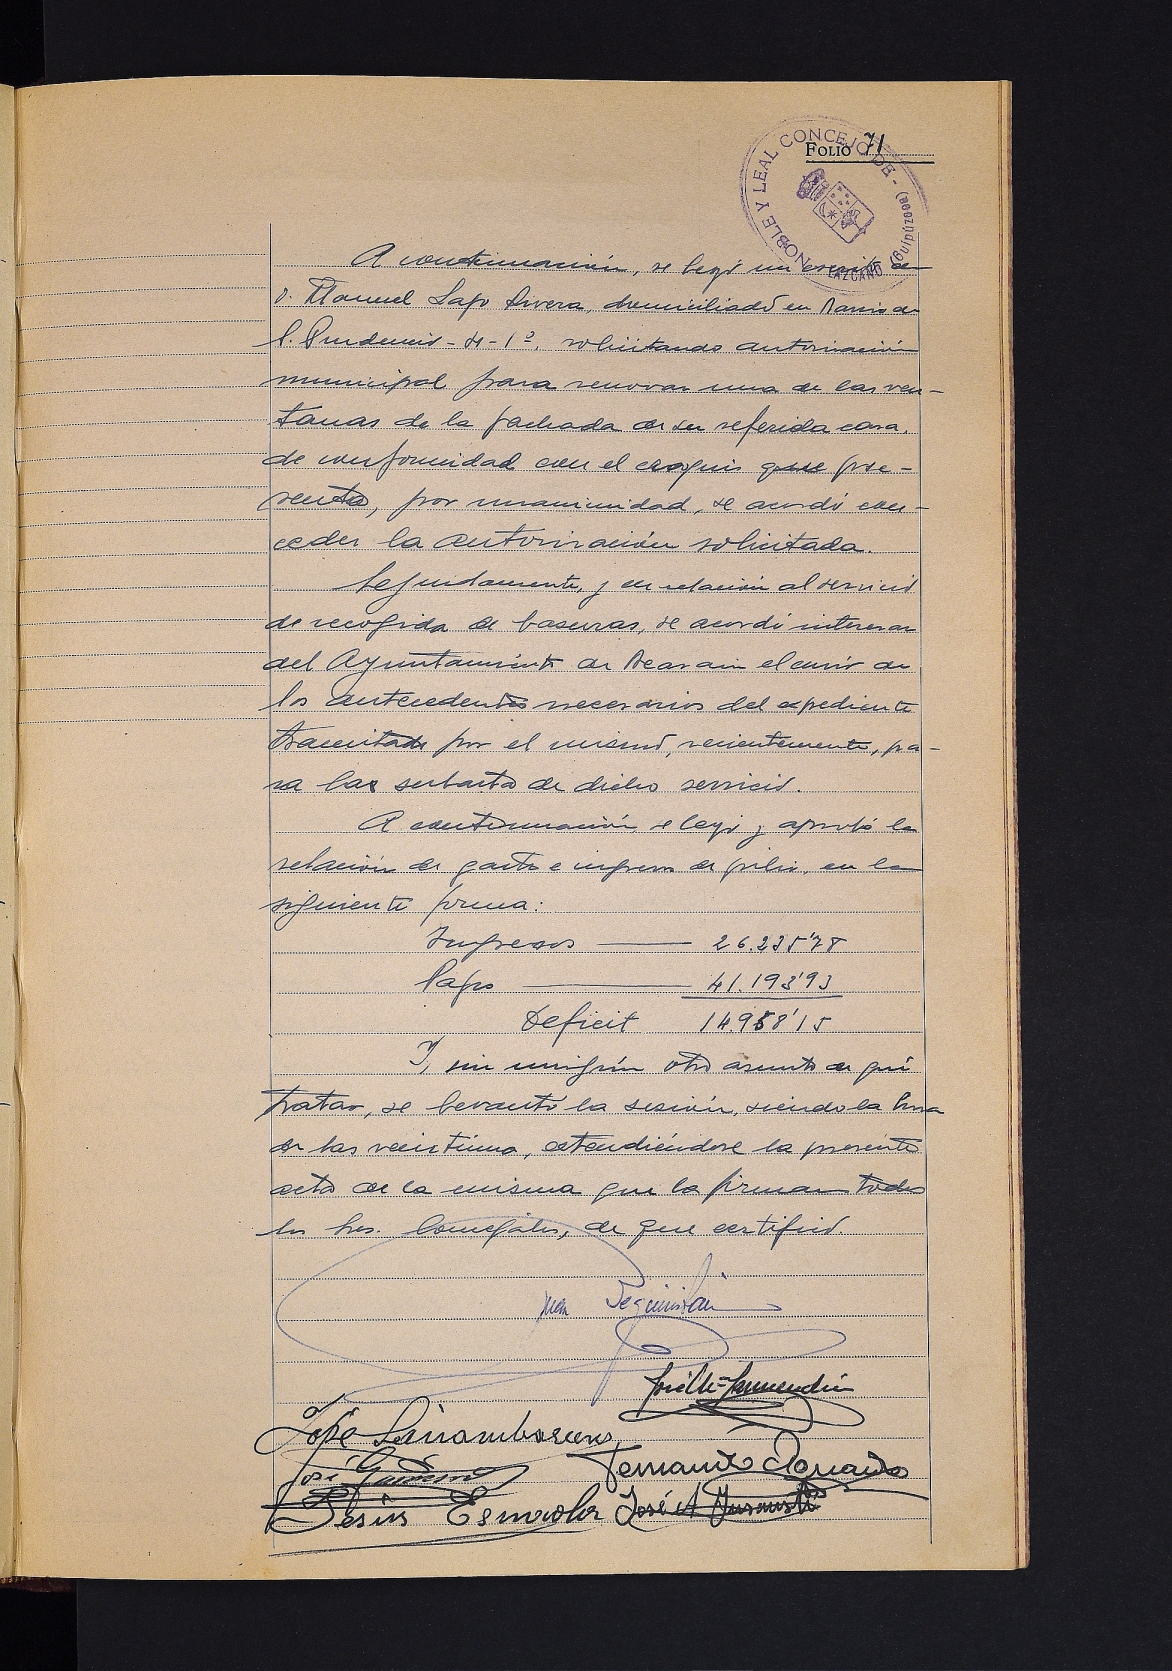 FOLIO 71
NOBLE Y LEAL CONCEJO DE - LAZCANO (Guipúzcoa)
A continuación, se leyó un escrito de
D. Manuel Rivera, domiciliado en Barrio de
S. Prudencio - 4 - 1º, solicitando autorización
municipal para renovar una de las ven-
tanas de la fachada de su referida casa,
de conformidad con el croquis que pre-
senta, por unanimidad, se acordó con-
ceder la autorización solicitada.
Seguidamente, y en relación al servicio
de recogida de basuras, se acordó interesar
del Ayuntamiento de Beasain el envío de
los antecedentes necesarios del expediente
tramitado por el mismo, recientemente, pa-
ra la subasta de dicho servicio.
A continuación se leyó y aprobó la
relación de gastos e ingresos de julio, en la
siguiente forma:
Ingresos — 26.235'78
Pagos — 41.193'93
Deficit 14.958'15
Y, sin ningún otro asunto de qué
tratar, se levantó la sesión, siendo la hora
de las veintiuna, extendiéndose la presente
acta de la misma que la firman todos
los Sres. Concejales, de que certifico.
Juan
José
José
José
Fernando
Jesús José A